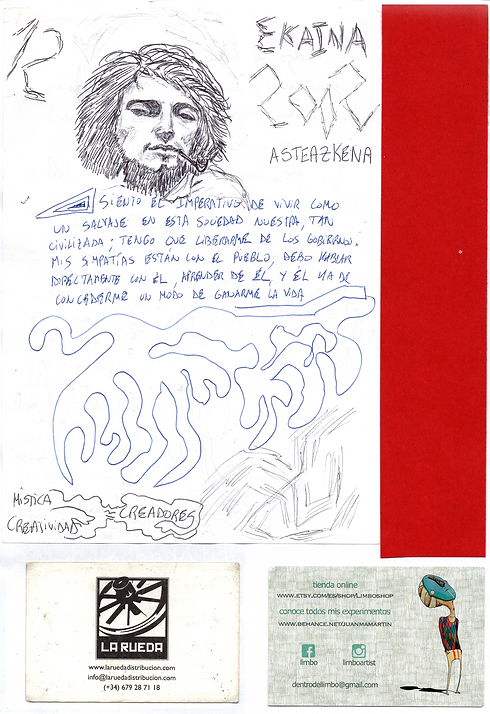 12
EKAINA
2012
ASTEAZKENA
SIENTO EL IMPERATIVO DE VIVIR COMO
UN SALVAJE EN ESTA SOCIEDAD NUESTRA, TAN
CIVILIZADA; TENGO QUE LIBERARME DE LOS GOBIERNOS.
MIS SIMPATÍAS ESTÁN CON EL PUEBLO, DEBO HABLAR
DIRECTAMENTE CON ÉL, APRENDER DE ÉL, Y ÉL HA DE
CONCEDERME UN MODO DE GANARME LA VIDA
MÍSTICA
CREATIVIDAD
= CREADORES
LA RUEDA
www.laruedadistribucion.com
info@laruedadistribucion.com
(+34) 679 28 71 18
tienda online
WWW.ETSY.COM/ES/SHOP/LIMBOSHOP
conoce todos mis experimentos
WWW.BEHANCE.NET/JUANMAMARTIN
limbo
limboartist
dentrodellimbo@gmail.com